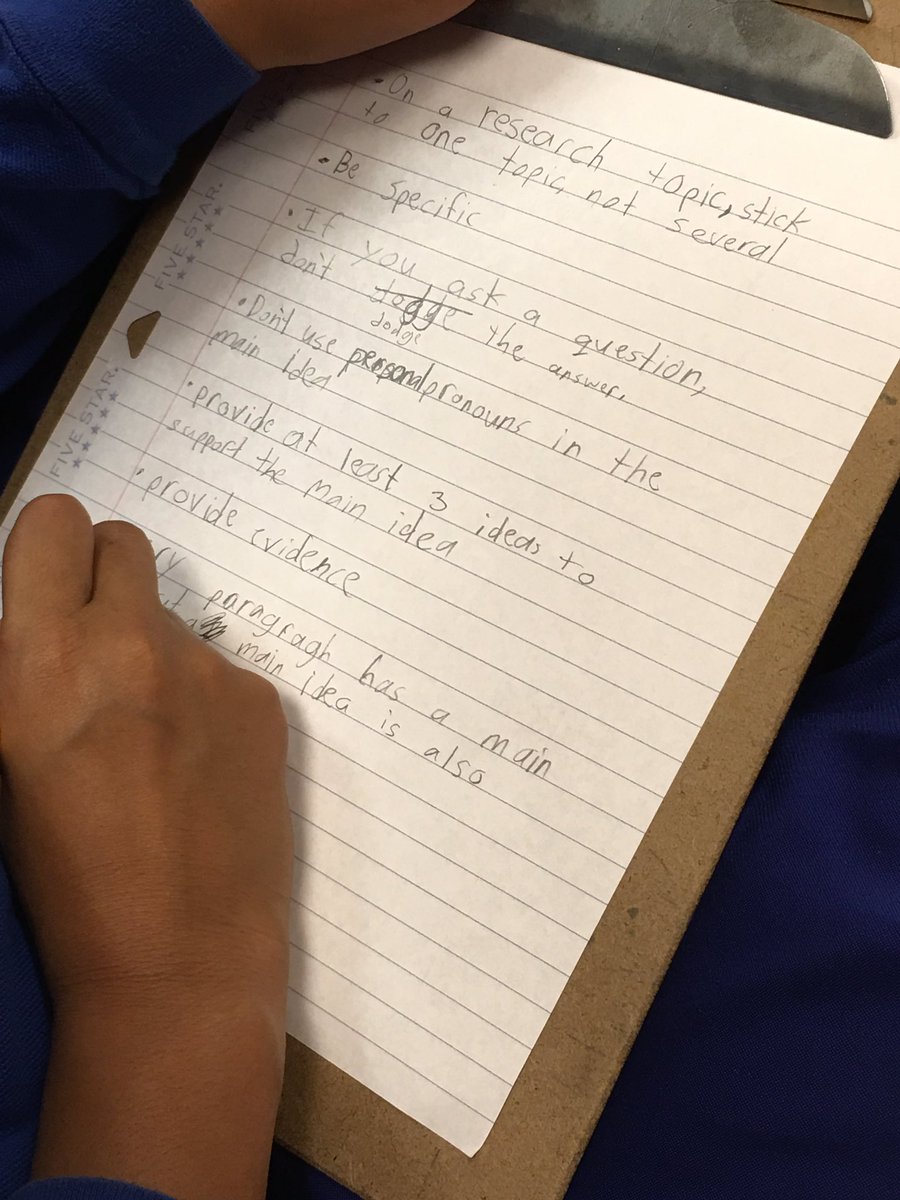 • On a research topic, stick
to one topic, not several
• Be specific
• If you ask a question,
don't dodge the answer.
dodge
• Don't use personal pronouns in the
main idea
• provide at least 3 ideas to
support the main idea
• provide evidence
paragragh has a main
main idea is also
FIVE STAR.
FIVE STAR.